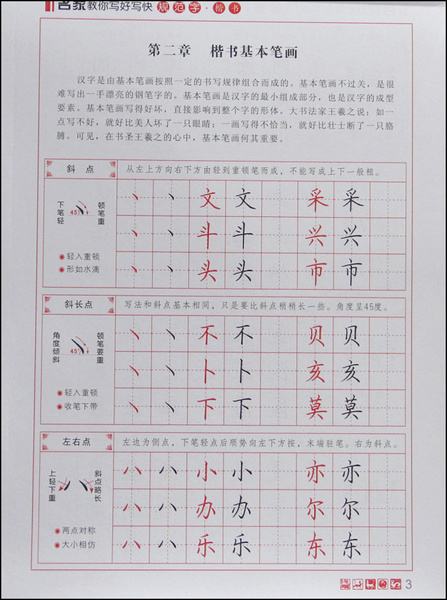 名家教你写好写快规范字·楷书
第二章 楷书基本笔画
汉字是由基本笔画按照一定的书写规律组合而成的。基本笔画不过关，是很
难写出一手漂亮的钢笔字的。基本笔画是汉字的最小组成部分，也是汉字的成型
要素。基本笔画写得好坏，直接影响到整个字的形体。大书法家王羲之说：如一
点写不好，就好比美人坏了一只眼睛；一画写得不恰当，就好比壮士断了一只胳
膊。可见，在书圣王羲之的心中，基本笔画何其重要。
斜 点
从左上方向右下方由轻到重顿笔而成，不能写成上下一般粗。
下笔轻
45°
顿笔重
轻入重顿
形如水滴
文 文 采 采
斗 斗 兴 兴
头 头 市 市
斜长点
写法和斜点基本相同，只是要比斜点稍稍长一些。角度呈45度。
角度倾斜
45°
顿笔要重
轻入重顿
收笔下带
不 不 贝 贝
卜 卜 亥 亥
下 下 莫 莫
左右点
左边为侧点，下笔轻点后顺势向左下方按，末端驻笔。右为斜点。
上轻下重
斜点略长
两点对称
大小相仿
小 小 亦 亦
办 办 尔 尔
乐 乐 东 东
3